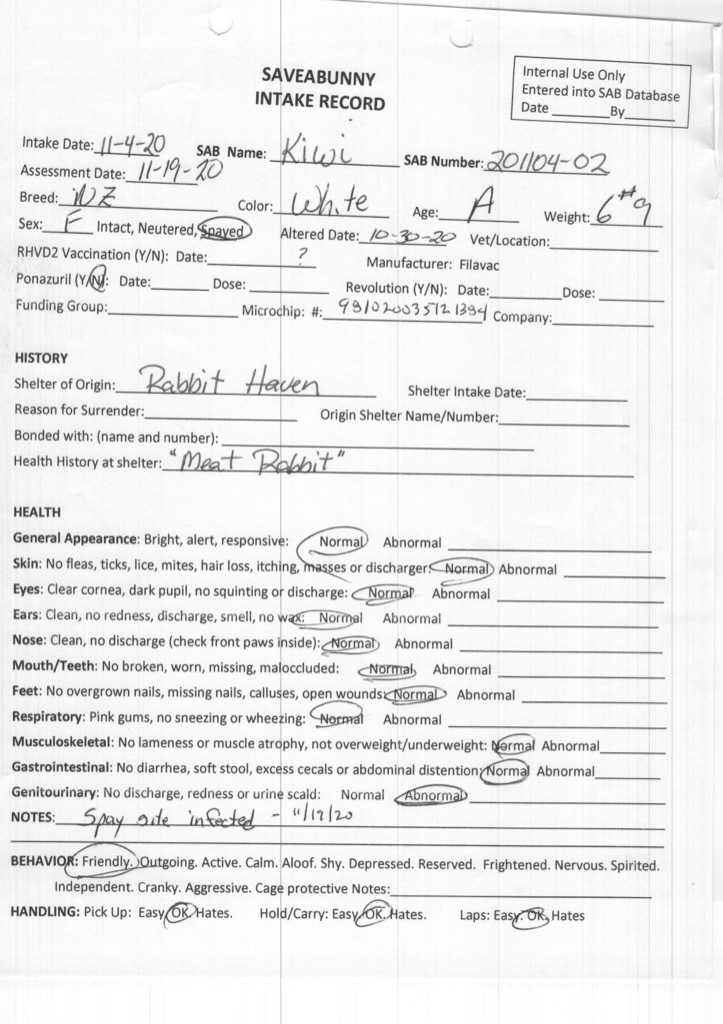 SAVEABUNNY
INTAKE RECORD
Internal Use Only
Entered into SAB Database
Date ________By________
Intake Date: 11-4-20 SAB Name: Kiwi SAB Number: 201104-02
Assessment Date: 11-19-20
Breed: NZ Color: White Age: A Weight: 6#9
Sex: F Intact, Neutered, Spayed Altered Date: 10-30-20 Vet/Location:________
RHVD2 Vaccination (Y/N): Date:________? Manufacturer: Filavac
Ponazuril (Y/N): Date:______ Dose:______ Revolution (Y/N): Date:________ Dose: ______
Funding Group:________ Microchip: #: 981020035121394 Company:________
HISTORY
Shelter of Origin: Rabbit Haven Shelter Intake Date:________
Reason for Surrender:________ Origin Shelter Name/Number:________
Bonded with: (name and number): ________
Health History at shelter: "Meat Rabbit"
HEALTH
General Appearance: Bright, alert, responsive: Normal Abnormal ________
Skin: No fleas, ticks, lice, mites, hair loss, itching, masses or discharger: Normal Abnormal ________
Eyes: Clear cornea, dark pupil, no squinting or discharge: Normal Abnormal ________
Ears: Clean, no redness, discharge, smell, no wax: Normal Abnormal ________
Nose: Clean, no discharge (check front paws inside): Normal Abnormal ________
Mouth/Teeth: No broken, worn, missing, maloccluded: Normal Abnormal ________
Feet: No overgrown nails, missing nails, calluses, open wounds: Normal Abnormal ________
Respiratory: Pink gums, no sneezing or wheezing: Normal Abnormal ________
Musculoskeletal: No lameness or muscle atrophy, not overweight/underweight: Normal Abnormal________
Gastrointestinal: No diarrhea, soft stool, excess cecals or abdominal distention: Normal Abnormal________
Genitourinary: No discharge, redness or urine scald: Normal Abnormal________
NOTES: Spay site infected - 11/12/20
BEHAVIOR: Friendly. Outgoing. Active. Calm. Aloof. Shy. Depressed. Reserved. Frightened. Nervous. Spirited.
Independent. Cranky. Aggressive. Cage protective Notes:________
HANDLING: Pick Up: Easy OK Hates. Hold/Carry: Easy OK. Hates. Laps: Easy. OK, Hates